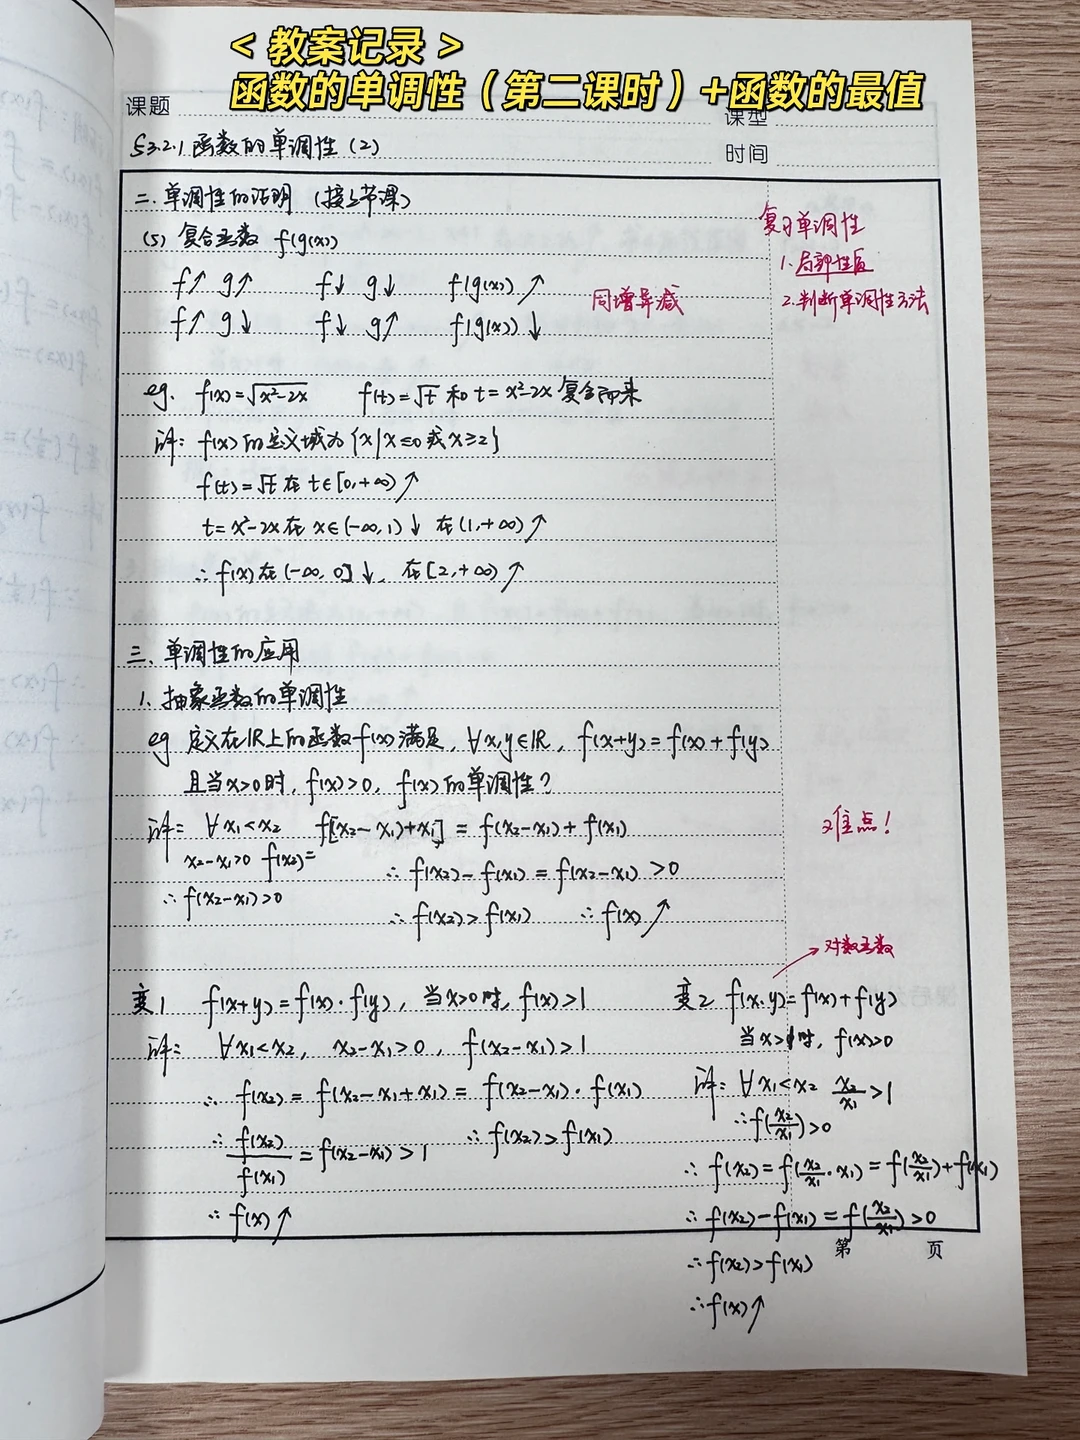 < 教案记录 >
函数的单调性(第二课时)+函数的最值
课题
课型
§3.2.1 函数的单调性(2)
时间
二.单调性的证明 (接上节课)
复习单调性
(5) 复合函数 f(g(x))
1.局部性质
f↗ g↗ f↓ g↓ f(g(x))↗
同增异减
2.判断单调性方法
f↗ g↓ f↓ g↗ f(g(x))↓
eg. f(x)=√x²-2x f(t)=√t 和 t=x²-2x 复合而来
证: f(x)的定义域为{x|x≤0或x≥2}
f(t)=√t 在 t∈[0,+∞)↗
t=x²-2x在 x∈(-∞,1)↓ 在(1,+∞)↗
∴f(x)在(-∞,0]↓, 在[2,+∞)↗
三.单调性的应用
1.抽象函数的单调性
eg 定义在R上的函数f(x)满足,∀x,y∈R,f(x+y)=f(x)+f(y)
且当x>0时,f(x)>0,f(x)的单调性?
证: ∀x₁<x₂ f[(x₂-x₁)+x₁]=f(x₂-x₁)+f(x₁)
难点!
x₂-x₁>0 f(x₂)=
∴f(x₂)-f(x₁)=f(x₂-x₁)>0
∴f(x₂-x₁)>0
∴f(x₂)>f(x₁) ∴f(x)↗
对数函数
变1 f(x+y)=f(x)·f(y),当x>0时,f(x)>1
证: ∀x₁<x₂, x₂-x₁>0, f(x₂-x₁)>1
∴f(x₂)=f(x₂-x₁+x₁)=f(x₂-x₁)·f(x₁)
∴f(x₂)/f(x₁)=f(x₂-x₁)>1 ∴f(x₂)>f(x₁)
∴f(x)↗
变2 f(x·y)=f(x)+f(y)
当x>1时,f(x)>0
证: ∀x₁<x₂ x₂/x₁>1
∴f(x₂/x₁)>0
∴f(x₂)=f(x₂/x₁·x₁)=f(x₂/x₁)+f(x₁)
∴f(x₂)-f(x₁)=f(x₂/x₁)>0
第 页
∴f(x₂)>f(x₁)
∴f(x)↗